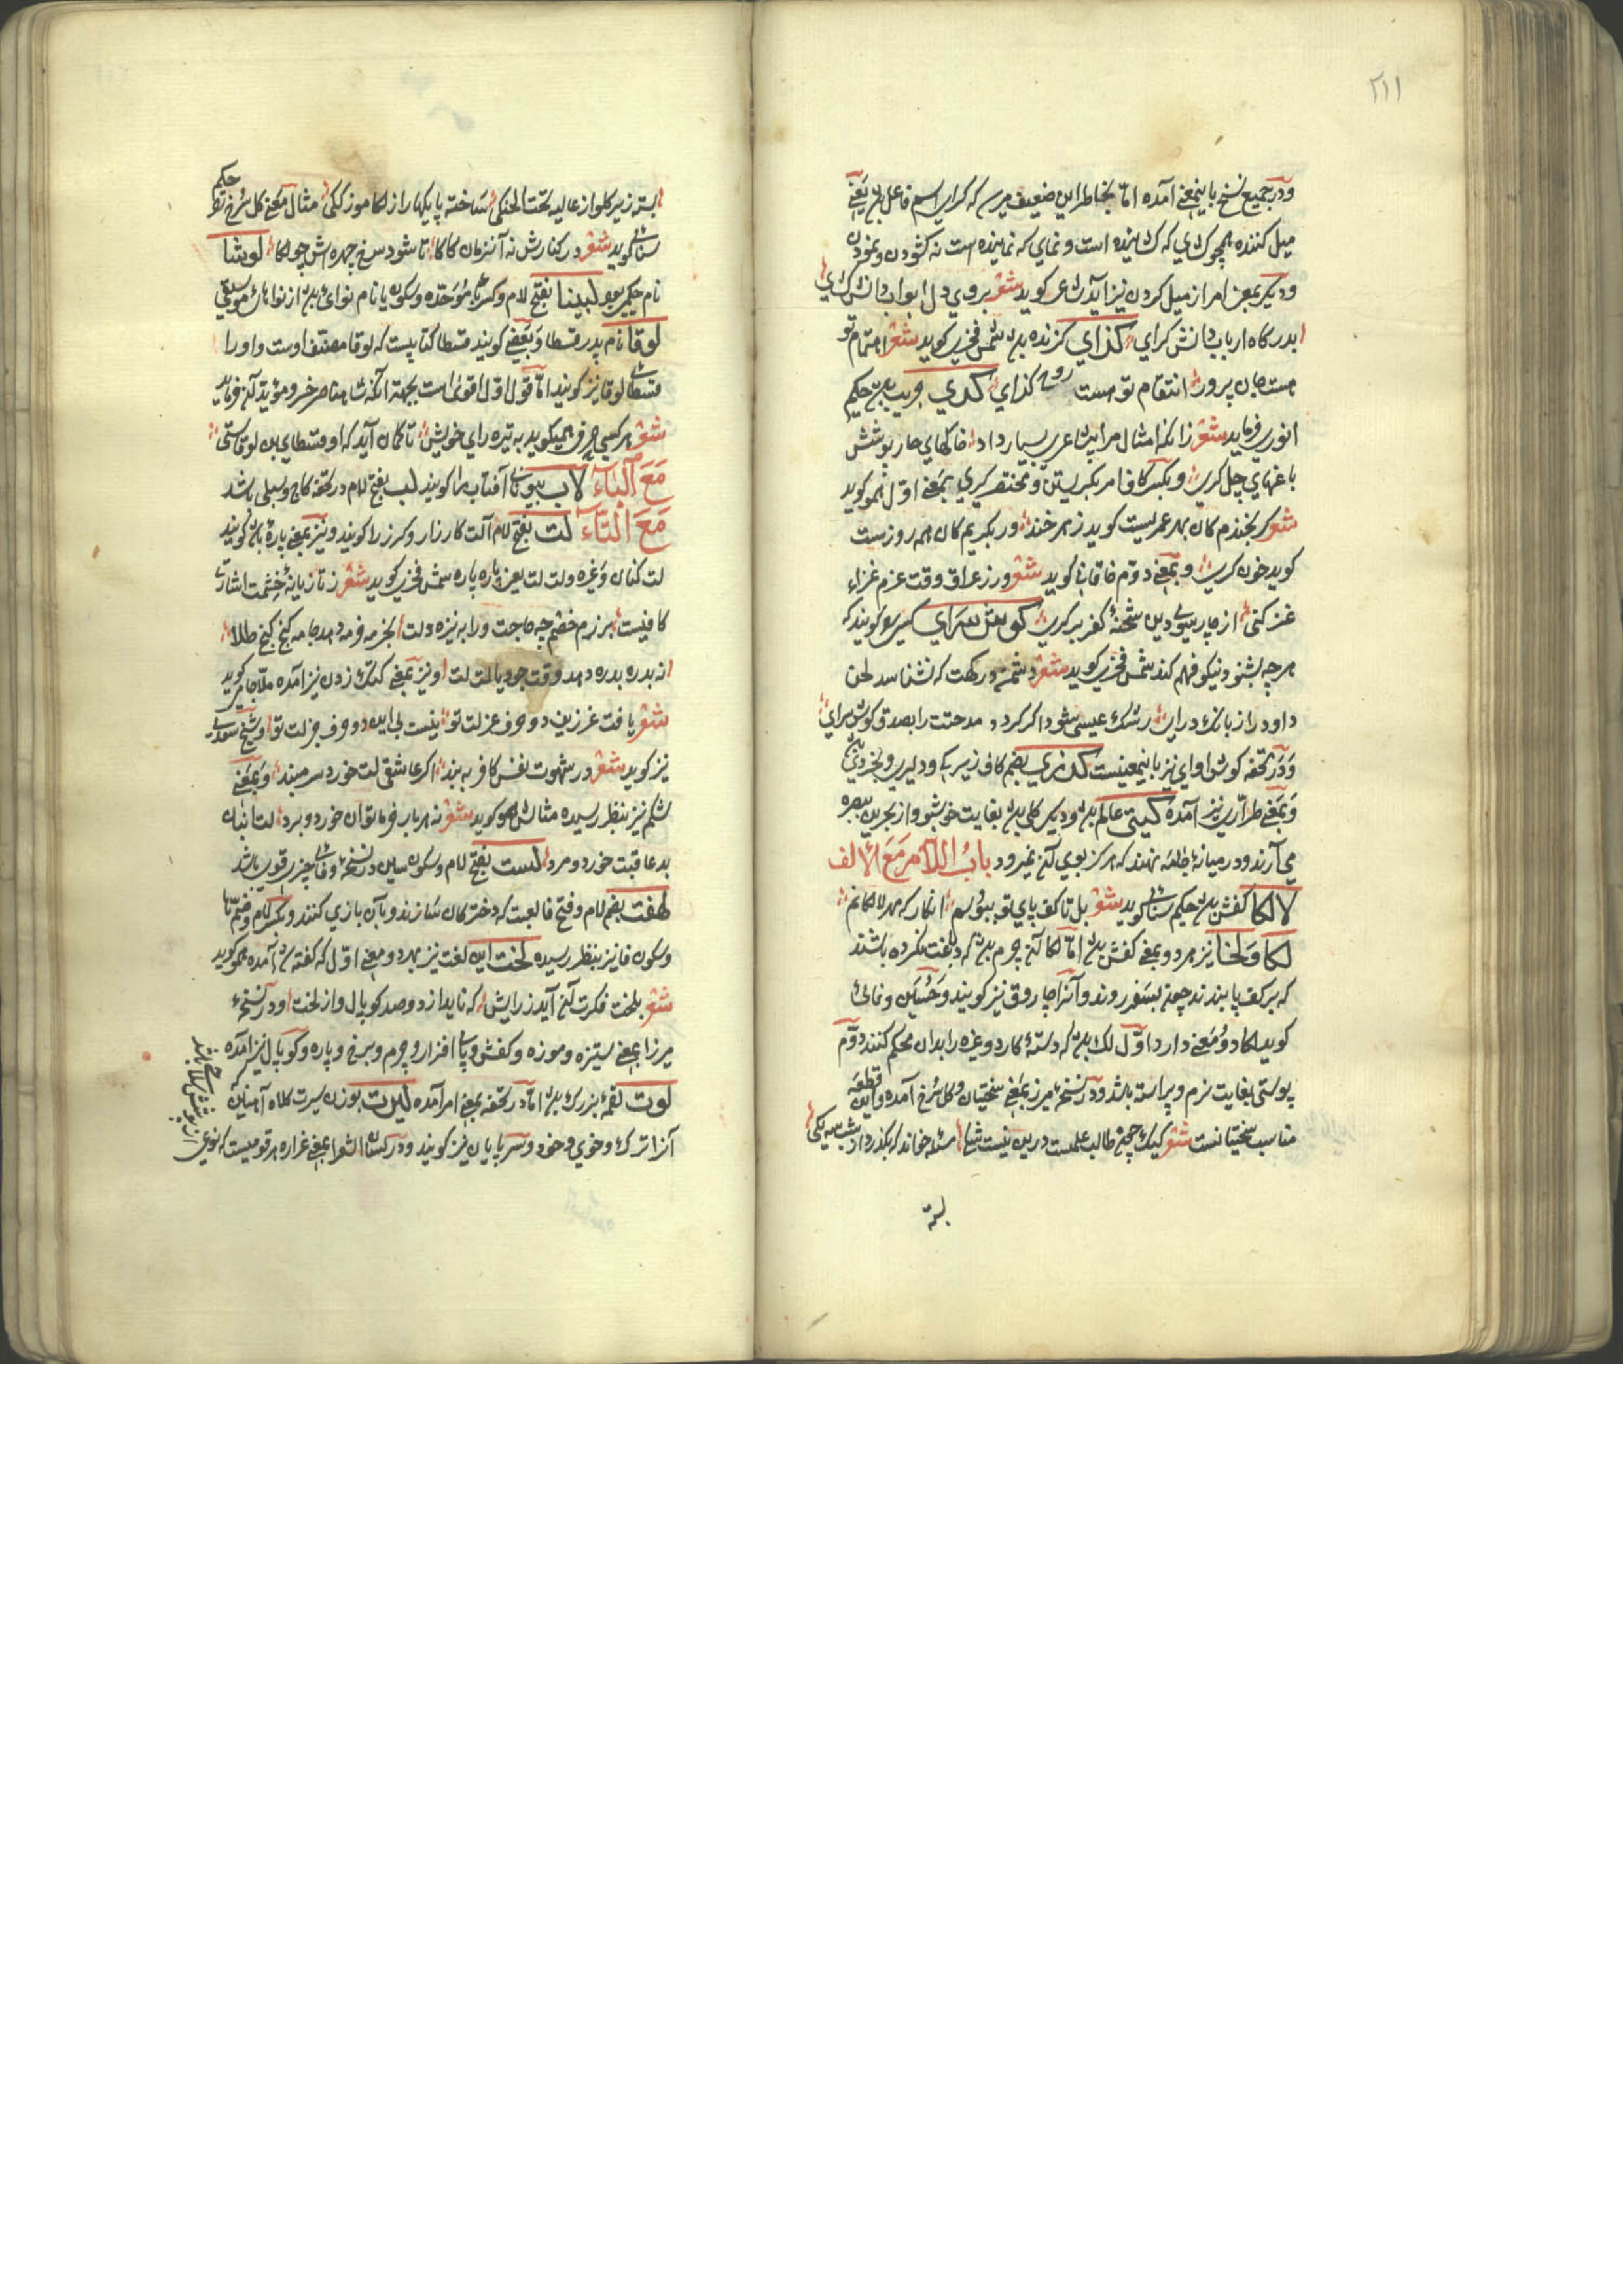 ۲۱۱
ودر جمیع نسخ باینمعنی آمده اما بخاطر این ضعیف میرسد که کرای اسم فاعل باشد یعنی
میل کننده همچو کشای که کشاینده است و نمای که نماینده است نه کشودن و نمودن
ودیگر بمعنی امر از میل کردن نیز آید شاعر کوید شعر بروی دل ابواب دانش کشای
بدرکاه ارباب دانش کرای کزای کزنده باشد شمس فخری کوید شعر اهتمام تو
هست جان پرور انتقام تو هست روح کزای کدی حکیم
انوری فرماید شعر زانکه امثال مرا بی شاعری بسیار داد خاکهای چار پوشش
باغهای چل کری وبکسر کاف امر بکریستن و مختصر کری بمعنی اول همو کوید
شعر کر بخندم کان بهر عمریست کوید زهر خند ور بکریم کان همه روزست
کوید خون کری وبمعنی دوم خاقانی کوید شعر ورز عراق وقت عزم غزاء
غز کنی از چار سوی دین شحنه کفر بر کری کوش سرای کسی را کویند که
هرچه بشنود نیکو فهم کند شمس فخری کوید شعر دشمنت در کهت که نشناسد لحن
داود را ز بانک درای رشک عیسی شود اکر کردد مدحتت را بصدق کوش سرای
ودر تحفه کوش اوای نیز باینمعنیست کندری بضم کاف زیرکی ودلیری وبخردی باشد
وبمعنی طراری نیز آمده کیتی عالم باشد ودیگر کلی باشد بغایت خوشبو واز بحرین ببصره
می آرند ودر میانه جامه نهند که هرکز بوی آن نمیرود باب اللام مع الالف
لالکا کفش باشد حکیم سنائی کوید شعر بل تا کف پای تو ببوسم انکار که مهر لالکایم
لکا ولخا نیز هر دو بمعنی کفش باشد اما لکا آن چرم باشد که دباغت نکرده باشند
که بر کف پا بندند چون بسفر روند وآنرا چاروق نیز کویند وحسین وفائی
کوید لکا دو معنی دارد اول لک باشد که دسته کارد وغیره را بدان محکم کنند دوم
پوستی بغایت نرم وپیراسته باشد ودر نسخه میرزا بمعنی سختیان وکل سرخ آمده واین قطعه
مناسب سختیانست شعر طالب علمست درین نیست شکی مسئله خواند که بکذرد از شب سه یکی
بسته
بسته زیر کلو از غالیه تحت الحنکی ساخته پایکها را ز لکا موزککی مثال بمعنی کل سرخ حکیم
سنائی کوید شعر در کنارش نه آنزمان کاکا تا شود سرخ چهره اش چو لکا لوشا
نام حکیمی بود لبینا بفتح لام وکسر باء موحده وسکون یا نام نوای باشد از نواهای موسیقی
لوقا نام پدر قسطا وبعضی کویند قسطا کتابیست که لوقا مصنف اوست واو را
قسطای لوقا نیز کویند اما قول اول اقوی است بجهة آنکه شاه ناصر خسرو مؤید آن فرماید
شعر هرکسی چیزی همیکوید به تیره رای خویش تا کمان آید که او قسطای بن لوقاستی
مع الباء لاب بیونانی آفتاب را کویند لب بفتح لام در تحفه کاج وسیلی باشد
مع التاء لت بفتح لام آلت کارزار وکرز را کویند ونیز بمعنی پاره باشد کویند
لت کتان وغیره ولت لت یعنی پاره پاره شمس فخری کوید شعر ز تازیانه خشمت اشارت
کافیست برزم خصم چه حاجت ورا به نیزه ولت بخرمه خرمه دهد جامه کنج کنج طلا
نه بدره بدره دهد وقت جود یا لت لت ونیز بمعنی کتک زدن نیز آمده ملا جامی کوید
شعر یافت غر زین دو حرف عزلت تو نیست بی این دو حرف جز لت تو وشیخ سعدی
نیز کوید شعر در شهوت نفس کافر ببند اکر عاشقی لت خور وسر مبند وبمعنی
شکم نیز بنظر رسیده مثالش همو کوید شعر نه هر بار خرما توان خورد وبرد لت انبان
بد عاقبت خورد ومرد لست بفتح لام وسکون سین در نسخه وفائی چیز قوی باشد
لهفت بضم لام وفتح فا لعبت که دخترکان سازند وبآن بازی کنند وبکسر لام وضم ها
وسکون فا نیز بنظر رسیده لخت این لغت نیز بهر دو معنی اول که گفته شد آمده همو کوید
شعر بلخت فکرت آن آید ز رایش که ناید از دو صد کوپال واز لخت ودر نسخه
میرزا بمعنی ستیزه وموزه وکفش وپای افزار وچرم وبرخ وپاره وکوپال نیز آمده
لوت لقمه بزرک باشد اما در تحفه بمعنی امر آمده لیرت بوزن سیرت کلاه آهنین
آنرا ترک وخوی وخود وسرپایان نیز کویند ودر لسان الشعرا بمعنی غراره مرقومیست که نوعی
از پوشش سلاح باشد